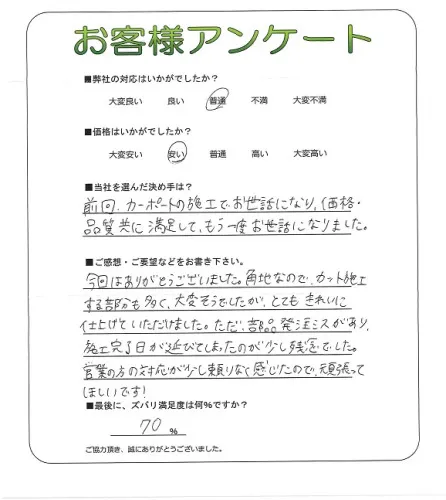 お客様アンケート
■弊社の対応はいかがでしたか?
大変良い 良い 普通 不満 大変不満
■価格はいかがでしたか?
大変安い 安い 普通 高い 大変高い
■当社を選んだ決め手は?
前回、カーポートの施工でお世話になり、価格・
品質共に満足して、もう一度お世話になりました。
■ご感想・ご要望などをお書き下さい。
今回はありがとうございました。角地なので、カット施工
する部分も多く、大変そうでしたが、とてもきれいに
仕上げていただけました。ただ、部品発注ミスがあり、
施工完了日が延びてしまったのが少し残念でした。
営業の方の対応が少し頼りなく感じたので、頑張って
ほしいです!
■最後に、ズバリ満足度は何%ですか?
70 %
ご協力頂き、誠にありがとうございました。